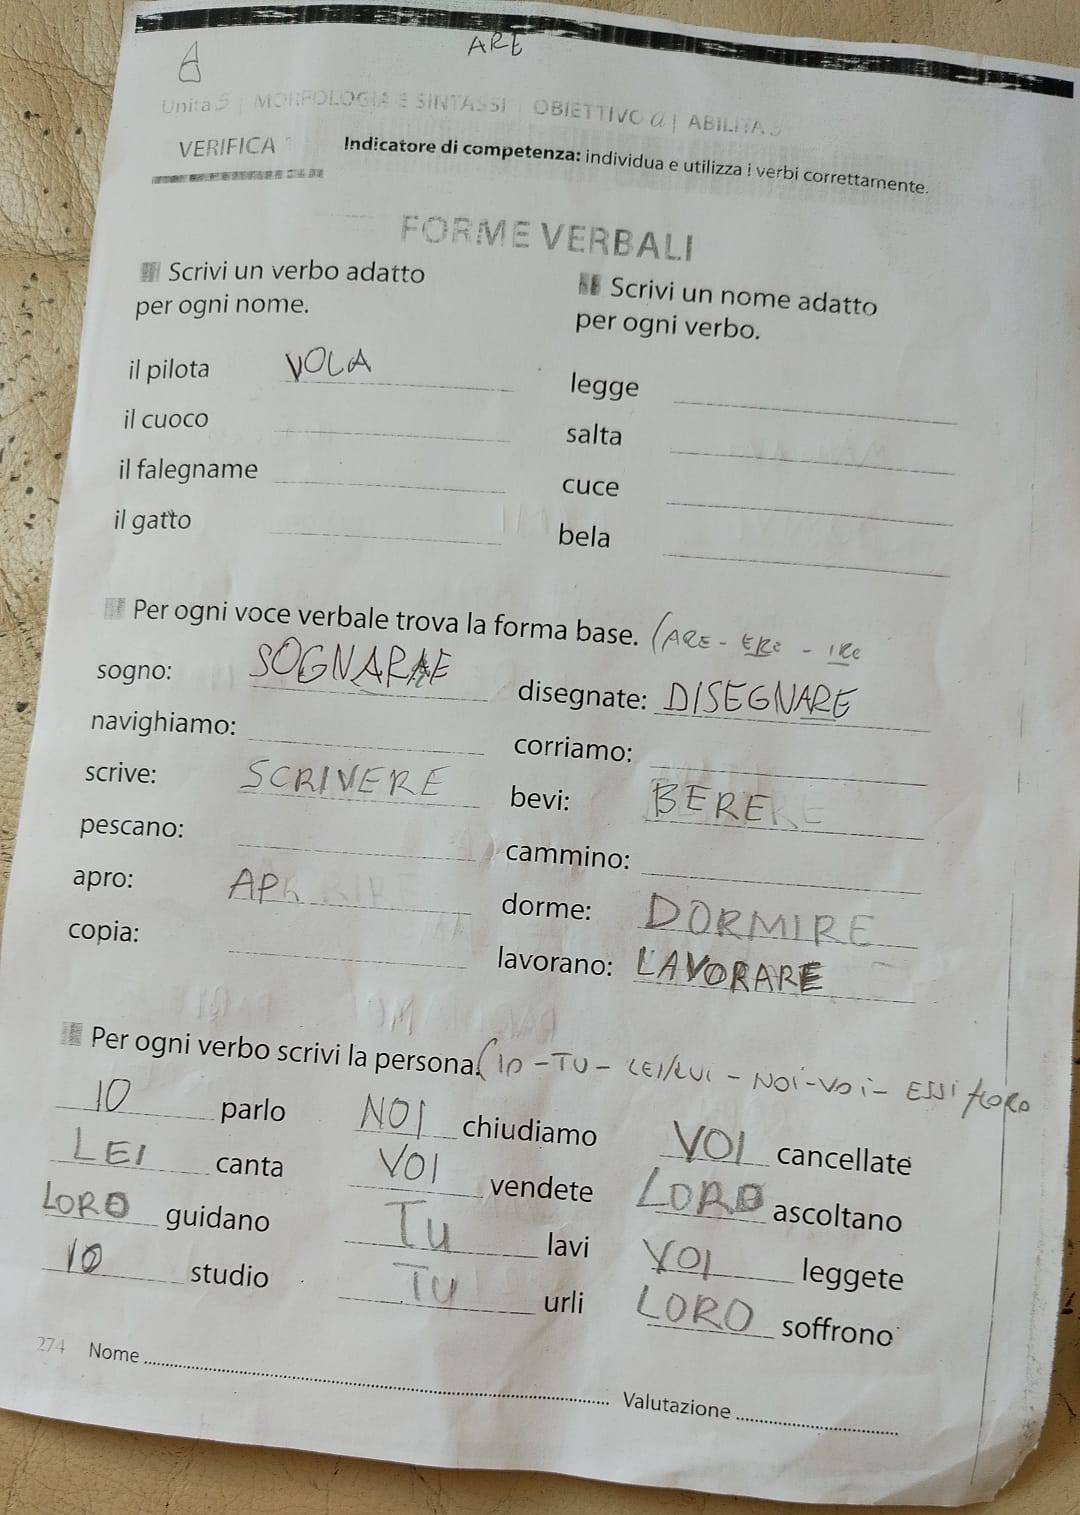 ARE
Unità 5 | MORFOLOGIA E SINTASSI | OBIETTIVO a | ABILITÀ 3
VERIFICA Indicatore di competenza: individua e utilizza i verbi correttamente.
FORME VERBALI
Scrivi un verbo adatto
per ogni nome.
il pilota VOLA
il cuoco
il falegname
il gatto
Scrivi un nome adatto
per ogni verbo.
legge
salta
cuce
bela
Per ogni voce verbale trova la forma base. (ARE - ERE - IRE
sogno: SOGNARE
navighiamo:
scrive: SCRIVERE
pescano:
apro: APR
copia:
disegnate: DISEGNARE
corriamo:
bevi: BERE
cammino:
dorme: DORMIRE
lavorano: LAVORARE
Per ogni verbo scrivi la persona. (IO - TU - LEI/LUI - NOI - VOI - ESSI/LORO
IO parlo
LEI canta
LORO guidano
IO studio
NOI chiudiamo
VOI vendete
TU lavi
TU urli
VOI cancellate
LORO ascoltano
VOI leggete
LORO soffrono
274 Nome
Valutazione